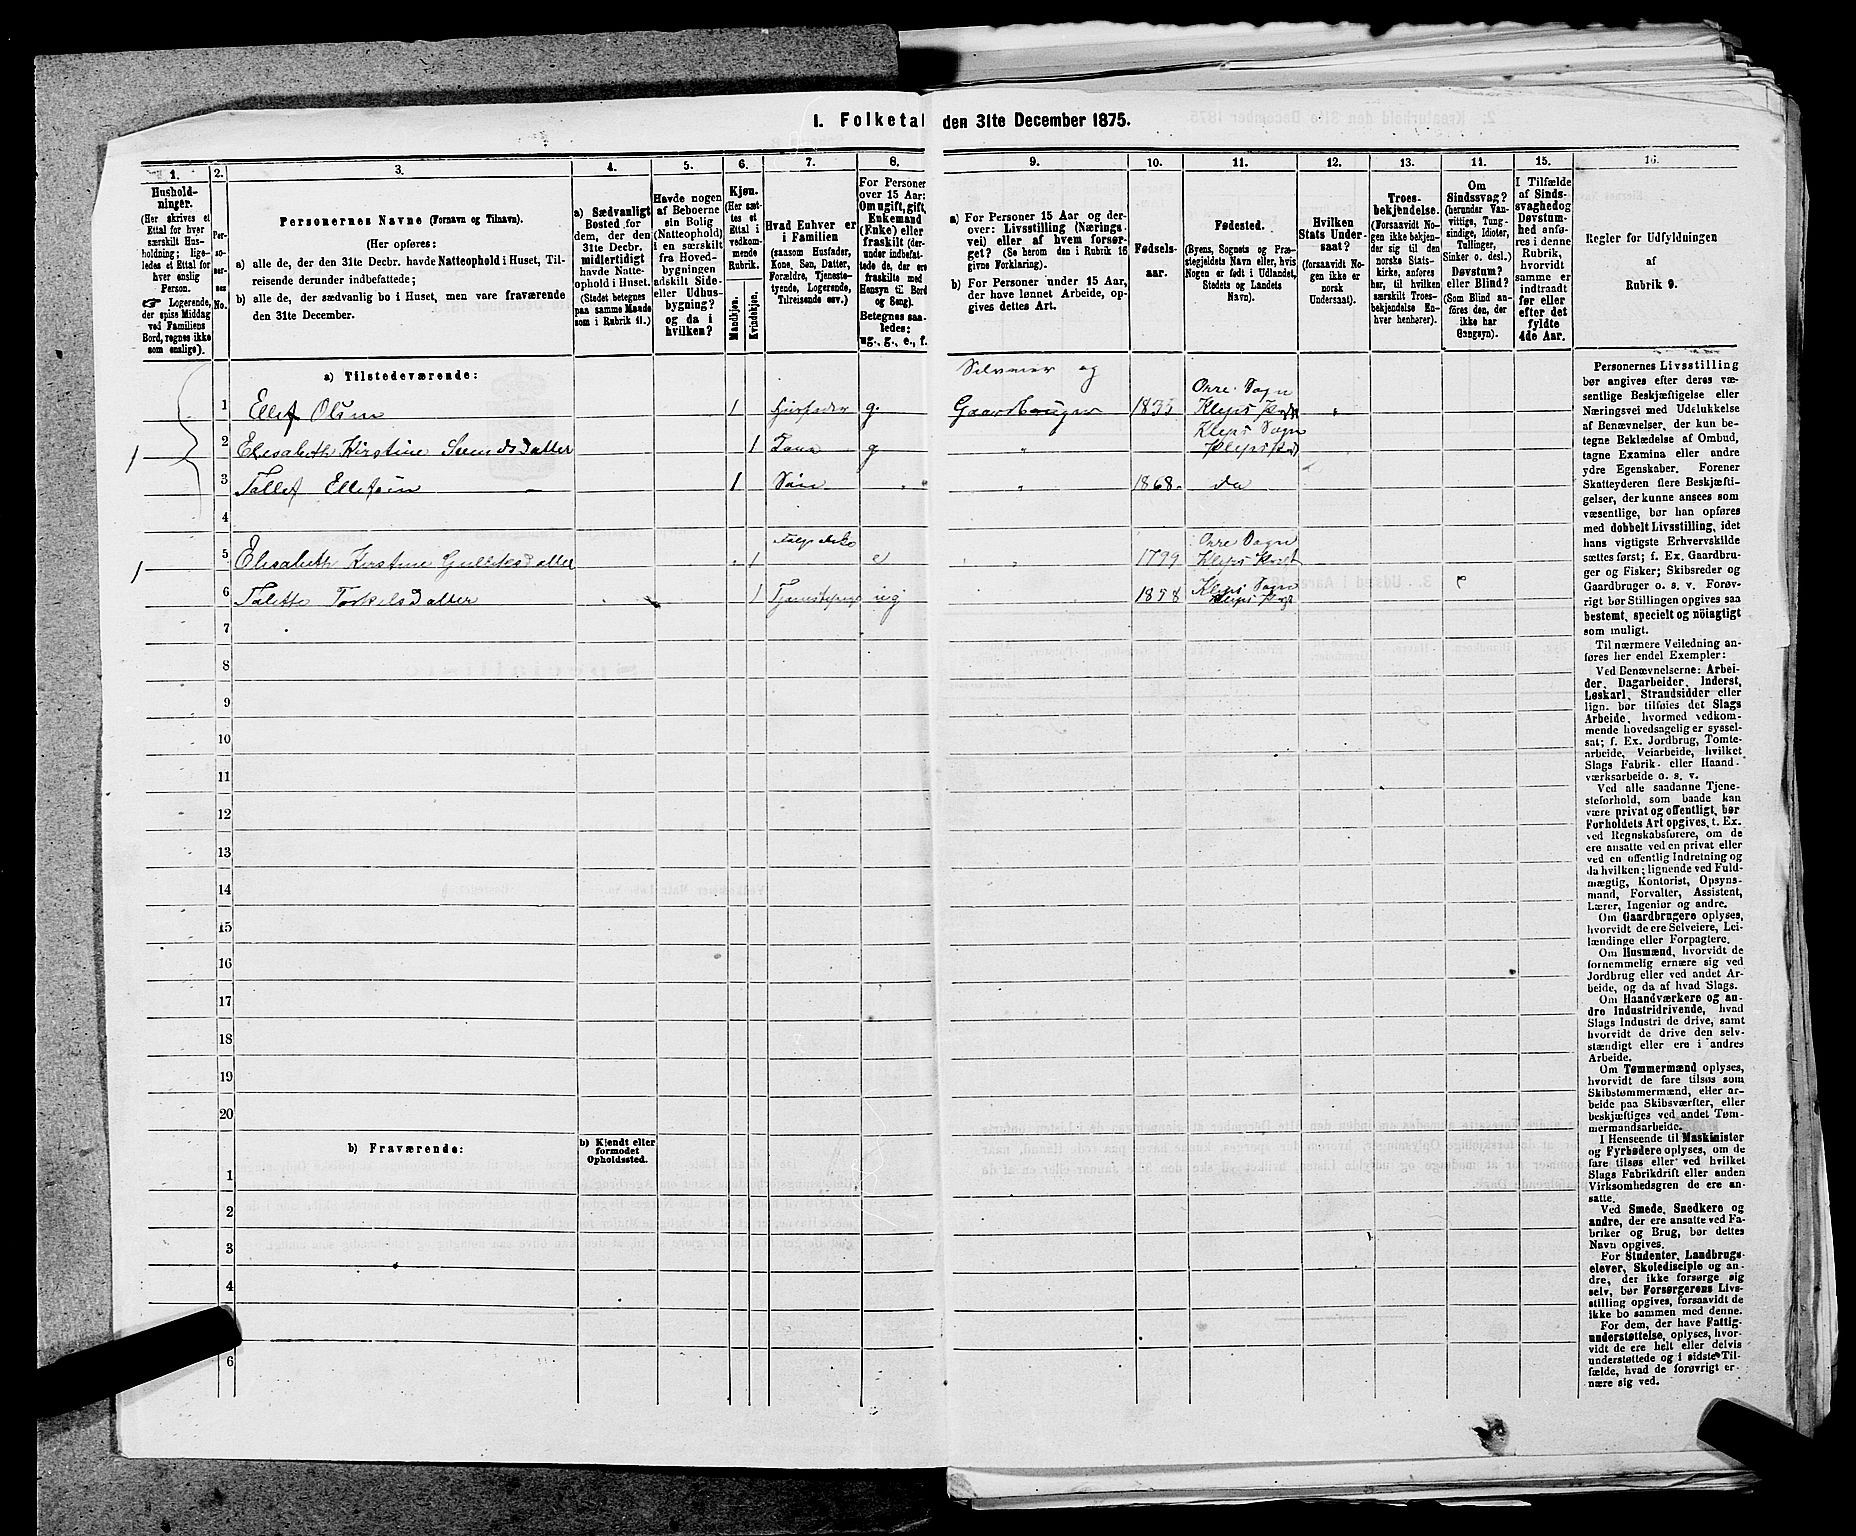 1. Folketal den 31te December 1875.
1.
Hushold-
ninger.
(Her skrives et
Ettal for hver
særskilt Hus-
holdning; lige-
ledes et Ettal for
hver enslig
Person.
Logerende,
der spise Middag
ved Familiens
Bord, regnes ikke
som enslige).
2.
No.
3.
Personernes Navne (Fornavn og Tilnavn).
(Her opføres:
a) alle de, der den 31te Decbr. havde Natteophold i Huset, Til-
reisende derunder indbefattede;
b) alle de, der sædvanlig bo i Huset, men vare fraværende
den 31te December.
4.
a) Sædvanligt
Bosted for
dem, der den
31te Decbr.
midlertidigt
havde Natte-
ophold i Huset.
(Stedet betegnes
paa samme Maade
som i Rubrik 11.)
5.
Havde nogen
af Beboerne
sin Bolig
(Natteophold)
i en særskilt
fra Hoved-
bygningen
adskilt Side-
eller Udhus-
bygning?
og da i
hvilken?
6.
Kjøn.
(Her sæt-
tes et
Ettal i
vedkom-
mende
Rubrik.
Mandkjøn.
Kvindekjøn.
7.
Hvad Enhver er
i Familien
(saasom Husfader,
Kone, Søn, Datter,
Forældre, Tjeneste-
tyende, Logerende,
Tilreisende osv.)
8.
For Personer
over 15 Aar:
Om ugift, gift,
Enkemand
(Enke) eller
fraskilt (der-
under indbefat-
tede de, der ere
fraskilte med
Hensyn til Bord
og Seng).
Betegnes saa-
ledes:
ug., g., e., f.
9.
a) For Personer 15 Aar og der-
over: Livsstilling (Nærings-
vei) eller af hvem forsør-
get? (Se herom den i Rubrik 16
givne Forklaring).
b) For Personer under 15 Aar,
der have lønnet Arbeide, op-
gives dettes Art.
10.
Fødsels-
aar.
11.
Fødested.
(Byens, Sognets og Præ-
stegjeldets Navn eller, hvis
Nogen er født i Udlandet,
Stedets og Landets
Navn).
12.
Hvilken
Stats Under-
saat?
(forsaavidt No-
gen ikke er
norsk
Undersaat).
13.
Troes-
bekjendelse.
(Forsaavidt No-
gen ikke bekjen-
der sig til den
norske Stats-
kirke, anføres
her, til hvilken
særskilt Troes-
bekjendelse En-
hver henhører).
11.
Om
Sindssvag?
(herunder Van-
vittige, Tung-
sindige, Idioter,
Tullinger,
Sinker o. desl.)
Døvstum?
eller Blind?
(Som Blind an-
føres den, der
ikke har
Gangsyn).
15.
I Tilfælde
af Sinds-
svaghed og
Døvstum-
hed anfø-
res i denne
Rubrik,
hvorvidt
samme er
indtraadt
før eller
efter det
fyldte
4de Aar.
16.
Regler for Udfyldningen
af
Rubrik 9.
a) Tilstedeværende:
1 Ellef Olsen 1 Husfader g. Selveier og Gaardbruger 1835 Orre Sogn Kleps Præst
1 2 Elisabeth Kirstine Svendsdatter 1 Kone g " Kleps Sogn Kleps Præst
3 Tollef Ellefsen 1 Søn " 1868. da
4
1 5 Elisabeth Kirstine Gulliksdatter 1 e " 1799 Orre Sogn Kleps Præst
6 Talette Torkelsdatter 1 ug 1858 Kleps Sogn Kleps Præst
7
8
9
10
11
12
13
14
15
16
17
18
19
20
b) Fraværende:
b) Kjendt eller
formodet
Opholdssted.
1
2
3
4
6
Personernes Livsstilling
bør angives efter deres væ-
sentlige Beskjæftigelse eller
Næringsvei med Udelukkelse
af Benævnelser, der kun be-
tegne Beklædelse af Ombud,
tagne Examina eller andre
ydre Egenskaber. Forener
Skatteyderen flere Beskjæfti-
gelser, der kunne ansees som
væsentlige, bør han opføres
med dobbelt Livsstilling, idet
hans vigtigste Erhvervskilde
sættes først; f. Ex. Gaardbru-
ger og Fisker; Skibsreder og
Gaardbruger o. s. v. Forøv-
rigt bør Stillingen opgives saa
bestemt, specielt og nöiagtigt
som muligt.
Til nærmere Veiledning an-
føres her endel Exempler:
Ved Benævnelserne: Arbei-
der, Dagarbeider, Inderst,
Løskarl, Strandsidder eller
lign. bør tilføies det Slags
Arbeide, hvormed vedkom-
mende hovedsagelig er syssel-
sat; f. Ex. Jordbrug, Tomte-
arbeide, Veiarbeide, hvilket
Slags Fabrik- eller Haand-
værksarbeide o. s. v.
Ved alle saadanne Tjene-
steforhold, som baade kan
være privat og offentligt, bør
Forholdets Art opgives, t. Ex.
ved Regnskabsførere, om de
ere ansatte ved en privat eller
ved en offentlig Indretning og
da hvilken; lignende ved Fuld-
mægtig, Kontorist, Opsyns-
mand, Forvalter, Assistent,
Lærer, Ingeniør og andre.
Om Gaardbrugere oplyses,
hvorvidt de ere Selveiere, Lei-
lændinge eller Forpagtere.
Om Husmænd, hvorvidt de
fornemmelig ernære sig ved
Jordbrug eller ved andet Ar-
beide, og da af hvad Slags.
Om Haandværkere og an-
dre Industridrivende, hvad
Slags Industri de drive, samt
hvorvidt de drive den selv-
stændigt eller ere i andres
Arbeide.
Om Tømmermænd oplyses,
hvorvidt de fare tilsøs som
Skibstømmermænd, eller ar-
beide paa Skibsværfter, eller
beskjæftiges ved andet Tøm-
mermandsarbeide.
I Henseende til Maskinister
og Fyrbødere oplyses, om de
fare tilsøs eller ved hvilket
Slags Fabrikdrift eller anden
Virksomhedsgren de ere an-
satte.
Ved Smede, Snedkere og
andre, der ere ansatte ved Fa-
briker og Brug, bør dettes
Navn opgives.
For Studenter, Landbrugs-
elever, Skoledisciple og an-
dre, der ikke forsørge sig
selv, bør Forsørgerens Livs-
stilling opgives, forsaavidt de
ikke bo sammen med denne.
For dem, der have Fattig-
understøttelse, oplyses, hvor-
vidt de ere helt eller delvis
understøttede og i sidste Til-
fælde, hvad de forøvrigt er-
nære sig ved.